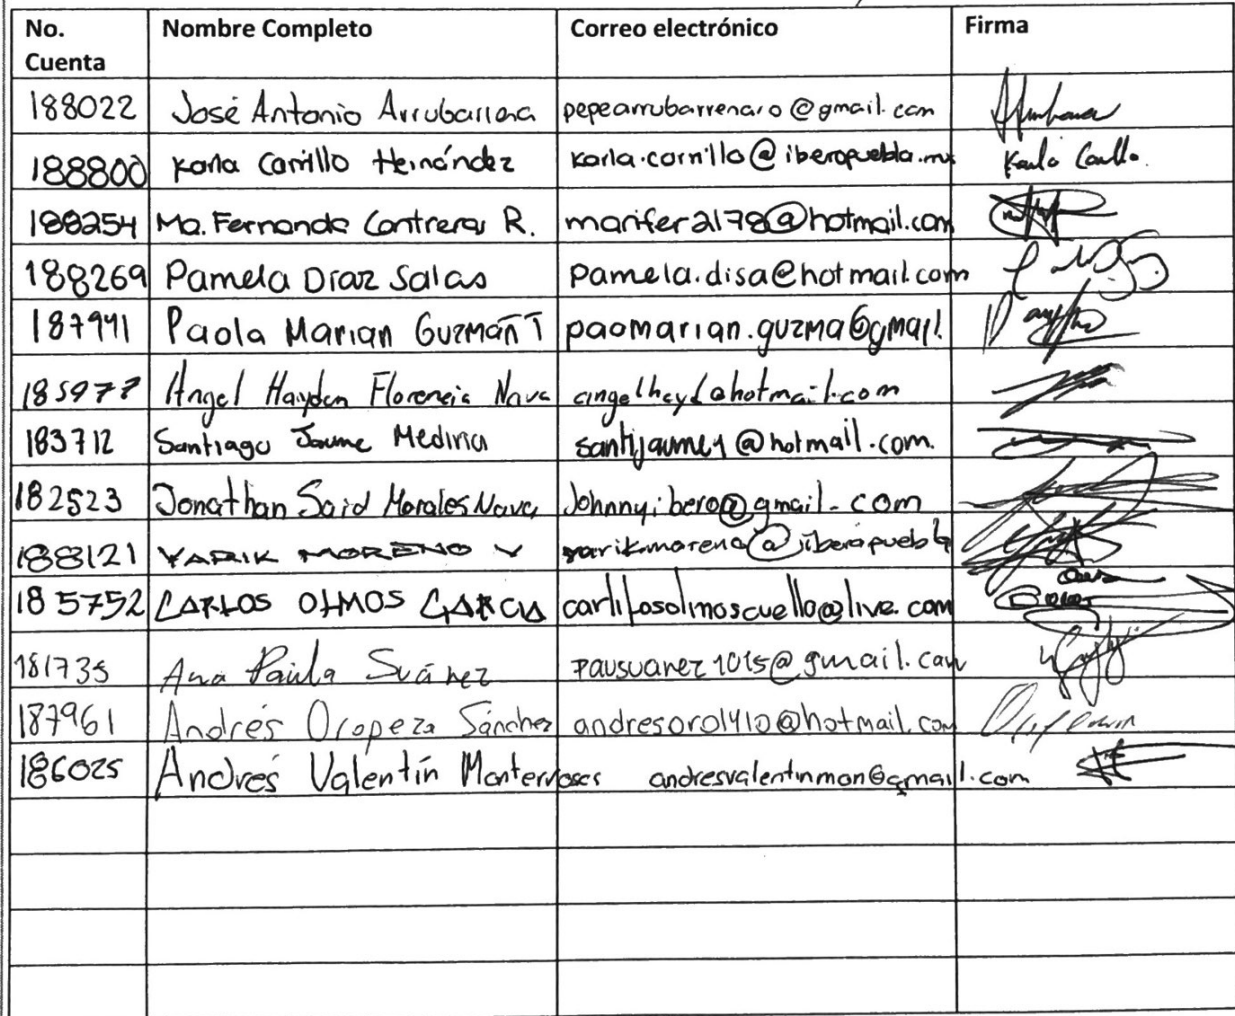 No. Cuenta Nombre Completo Correo electrónico Firma
188022 José Antonio Arrubarrena pepearrubarrenaro@gmail.com
188800 Karla Carrillo Hernández karla.carrillo@iberopuebla.mx Karla Carrillo.
188254 Ma. Fernanda Contreras R. marifer2178@hotmail.com
188269 Pamela Díaz Salas pamela.disa@hotmail.com
187941 Paola Marian Guzmán T paomarian.guzma@gmail.
185977 Angel Hayden Florencia Nava angelhayd@hotmail.com
183712 Santiago Jaume Medina santijaume1@hotmail.com.
182523 Jonathan Said Morales Nava Johnnyibero@gmail.com
188121 YARIK MORENO V yarik.moreno@iberopuebla
185752 CARLOS OLMOS GARCIA carlitosolmoscuello@live.com
181735 Ana Paula Suárez pausuarez1015@gmail.com
187961 Andrés Oropeza Sánchez andresoro1410@hotmail.com
186025 Andrés Valentín Monterrosas andresvalentinmon@gmail.com